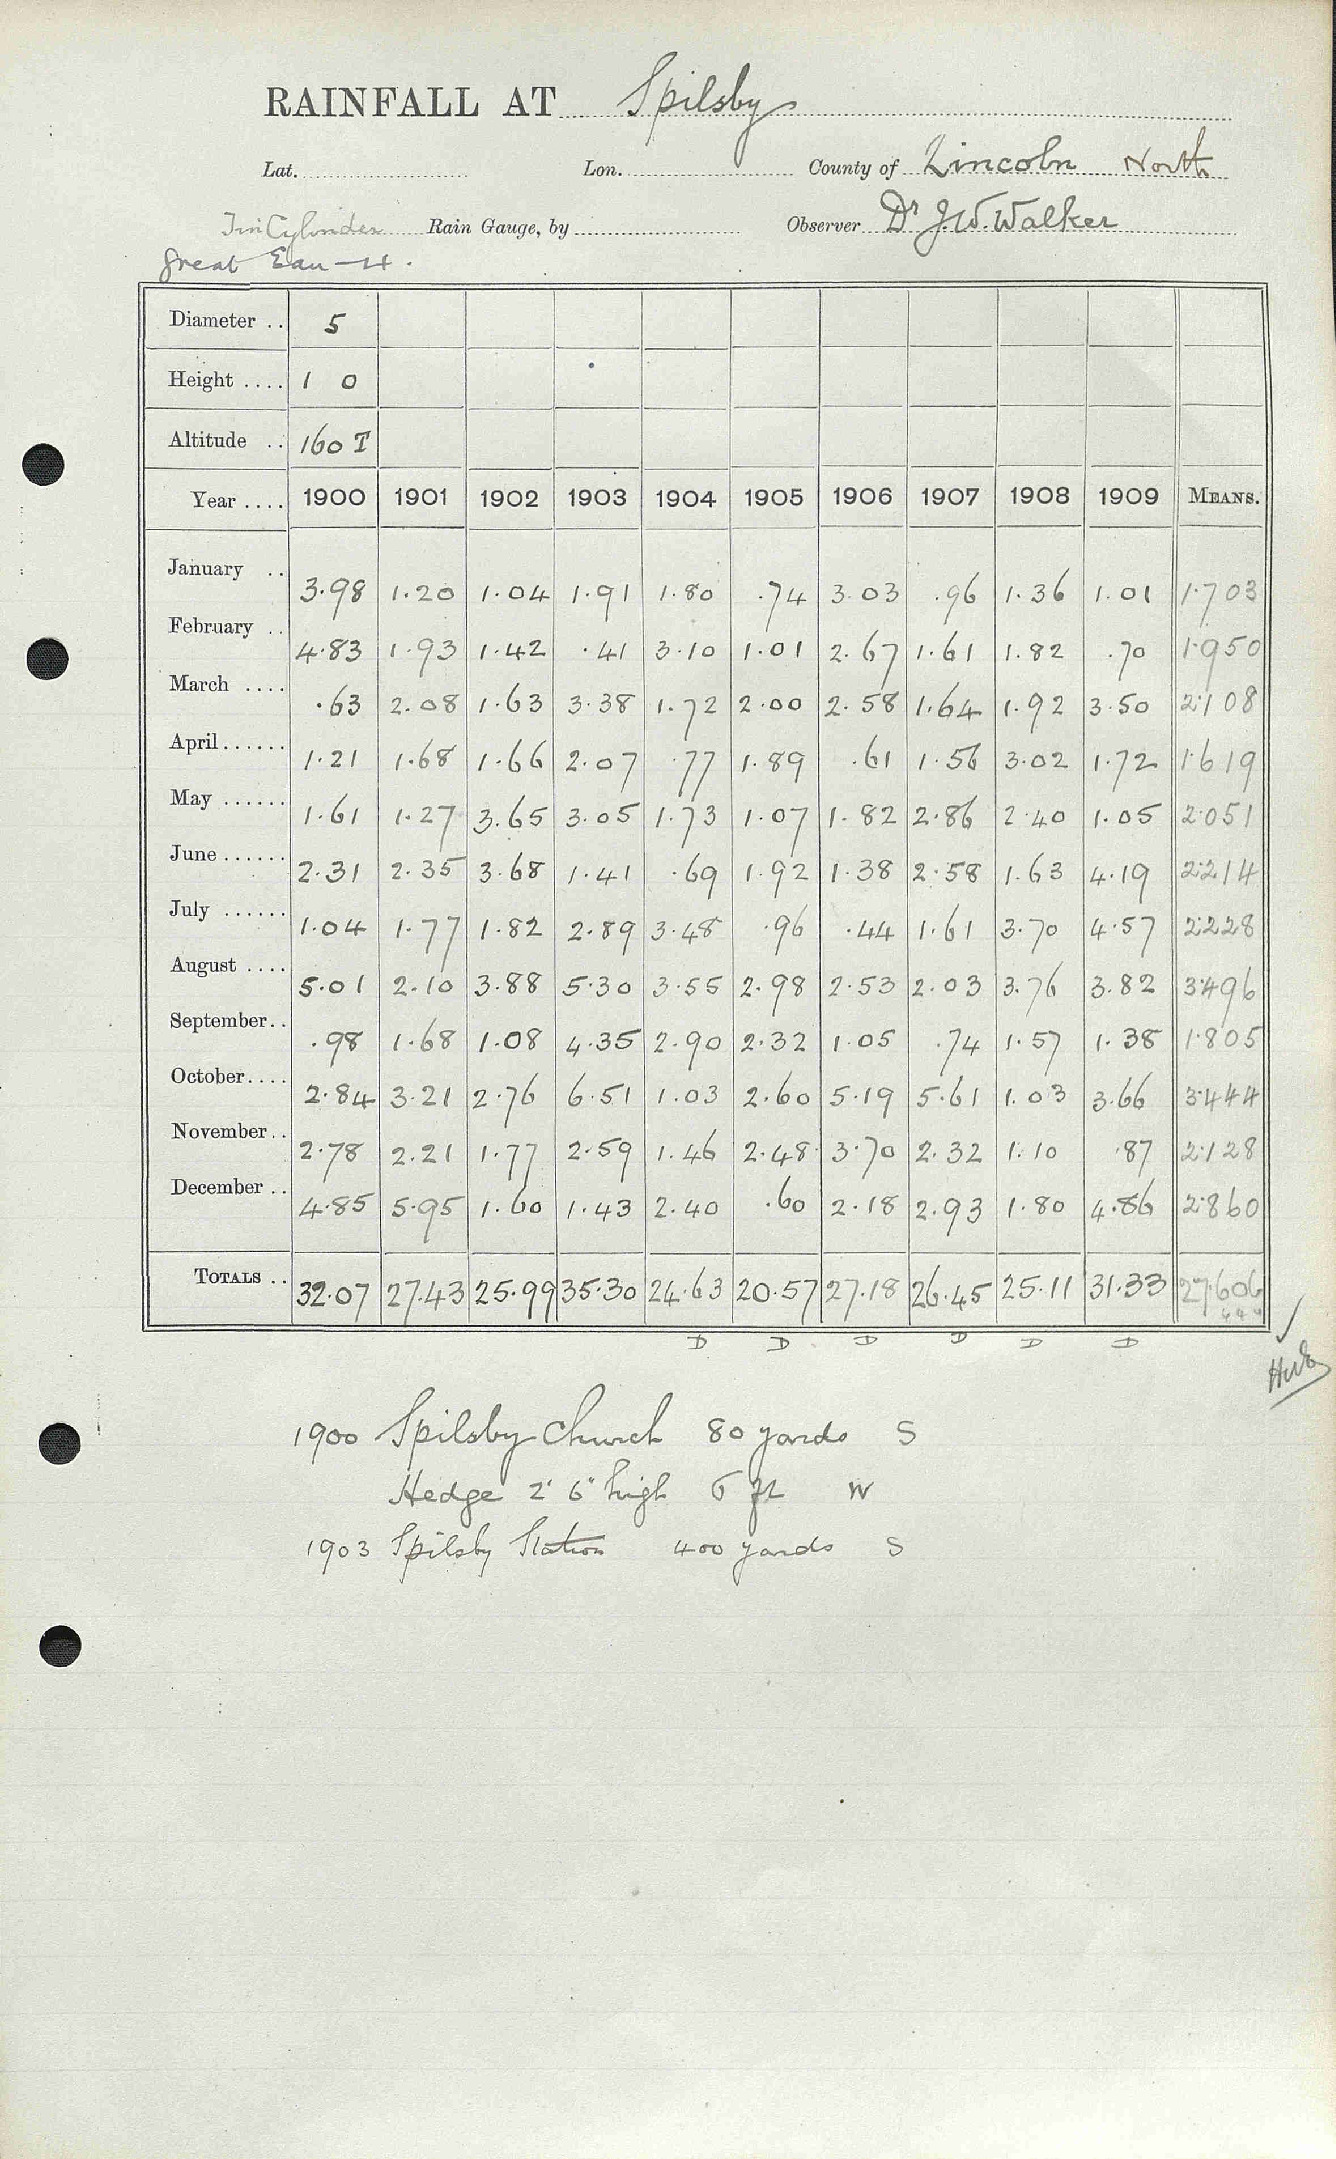 RAINFALL AT Spilsby
Lat. Lon. County of Lincoln North
Tin Cylinder Rain Gauge, by Observer Dr J.W. Walker
Great Eau —
Diameter .. 5
Height .... 1 0
Altitude .. 160 T
Year .... 1900 1901 1902 1903 1904 1905 1906 1907 1908 1909 MEANS.
January .. 3.98 1.20 1.04 1.91 1.80 .74 3.03 .96 1.36 1.01 1.703
February .. 4.83 1.93 1.42 .41 3.10 1.01 2.67 1.61 1.82 .70 1.950
March .... .63 2.08 1.63 3.38 1.72 2.00 2.58 1.64 1.92 3.50 2.108
April...... 1.21 1.68 1.66 2.07 .77 1.89 .61 1.56 3.02 1.72 1.619
May ...... 1.61 1.27 3.65 3.05 1.73 1.07 1.82 2.86 2.40 1.05 2.051
June ...... 2.31 2.35 3.68 1.41 .69 1.92 1.38 2.58 1.63 4.19 2.214
July ...... 1.04 1.77 1.82 2.89 3.48 .96 .44 1.61 3.70 4.57 2.228
August .... 5.01 2.10 3.88 5.30 3.55 2.98 2.53 2.03 3.76 3.82 3.496
September.. .98 1.68 1.08 4.35 2.90 2.32 1.05 .74 1.57 1.38 1.805
October.... 2.84 3.21 2.76 6.51 1.03 2.60 5.19 5.61 1.03 3.66 3.444
November.. 2.78 2.21 1.77 2.59 1.46 2.48 3.70 2.32 1.10 .87 2.128
December .. 4.85 5.95 1.60 1.43 2.40 .60 2.18 2.93 1.80 4.86 2.860
TOTALS .. 32.07 27.43 25.99 35.30 24.63 20.57 27.18 26.45 25.11 31.33 27.606
D D D D D D
1900 Spilsby Church 80 yards S
Hedge 2' 6" high 6 ft W
1903 Spilsby Station 400 yards S